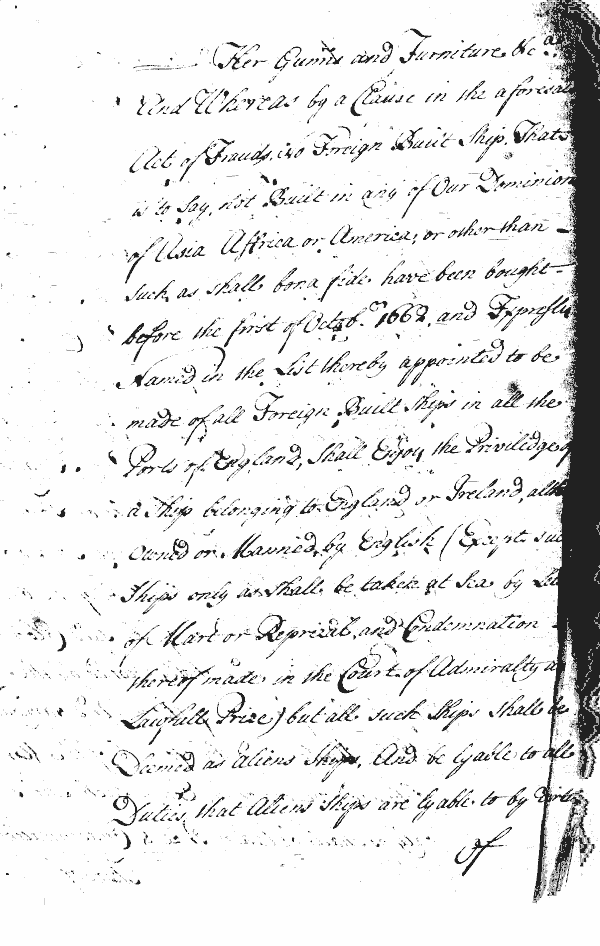 Her Gunns and Furniture &c.a
And Whereas by a Clause in the aforesaid
Act of Frauds, no Foreign Built Ship, That
is to Say, not Built in any of Our Dominion
of Asia Affrica or America, or other than
such as shall bona fide have been bought
before the first of Octob.r 1662, and Expressly
Named in the List thereby appointed to be
made of all Foreign Built Ships in all the
Ports of England, Shall Enjoy the Priviledge of
a Ship belonging to England or Ireland, altho
Owned or Manned by English (Except such
Ships only as shall be taken at Sea by Let
of Mart or Reprizal, and Condemnation
thereof made in the Court of Admiralty as
Lawfull Prize) but all such Ships shall be
Deemed as aliens Ships, And be lyable to all
Duties that Aliens Ships are lyable to by Virtue
Of